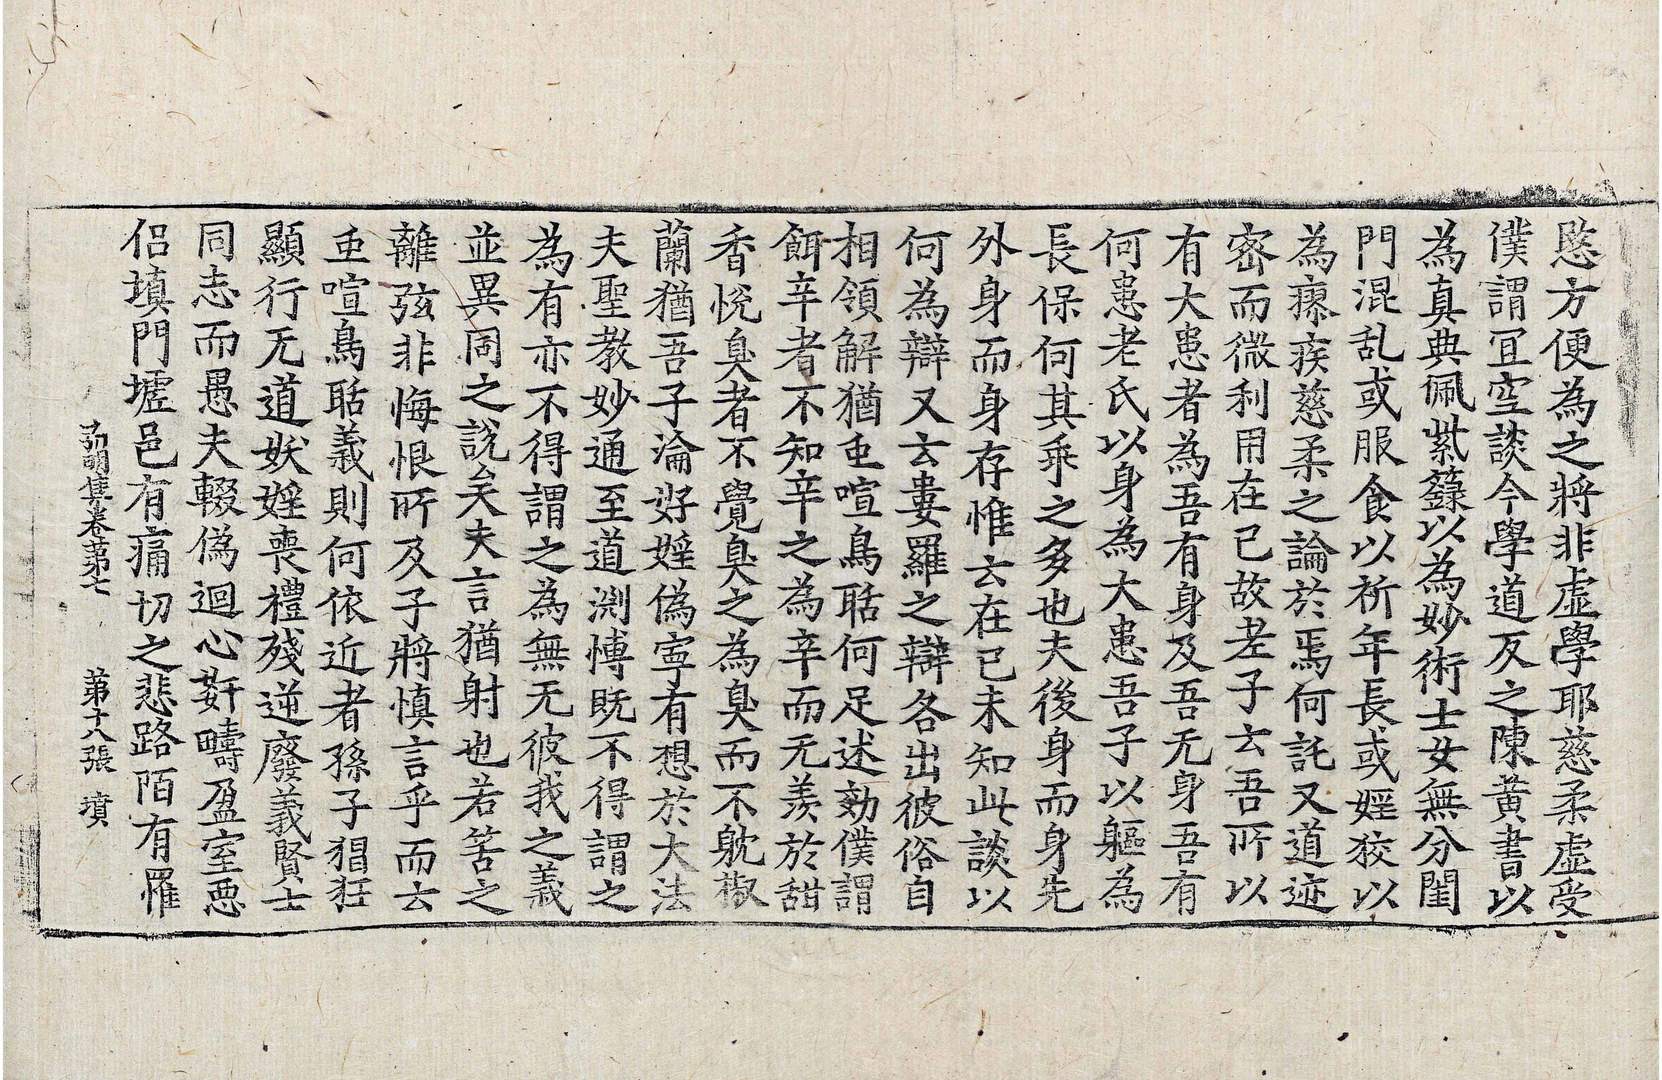 愍方便為之將非虛學耶慈柔虛受
僕謂冝空談今學道反之陳黃書以
為真典佩紫籙以為妙術士女無分閨
門混乱或服食以祈年長或婬狡以
為瘝疾慈柔之論於焉何託又道迹
密而微利用在己故老子云吾所以
有大患者為吾有身及吾无身吾有
何患老氏以身為大患吾子以軀為
長保何其乖之多也夫後身而身先
外身而身存惟云在己未知此談以
何為辯又云婁羅之辯各出彼俗自
相領解猶虫喧鳥聒何足述効僕謂
餌辛者不知辛之為辛而无羡於甜
香悅臭者不覺臭之為臭而不躭椒
蘭猶吾子淪好婬偽寧有想於大法
夫聖教妙通至道渕博既不得謂之
為有亦不得謂之為無无彼我之義
並異同之說矣夫言猶射也若筈之
離弦非悔恨所及子將慎言乎而云
虫喧鳥聒義則何依近者孫子猖狂
顯行无道妖婬喪禮殘逆廢義賢士
同志而愚夫輟偽迴心姧疇盈室惡
侶填門墟邑有痛切之悲路陌有罹
弘明集卷第七 第十八張 墳